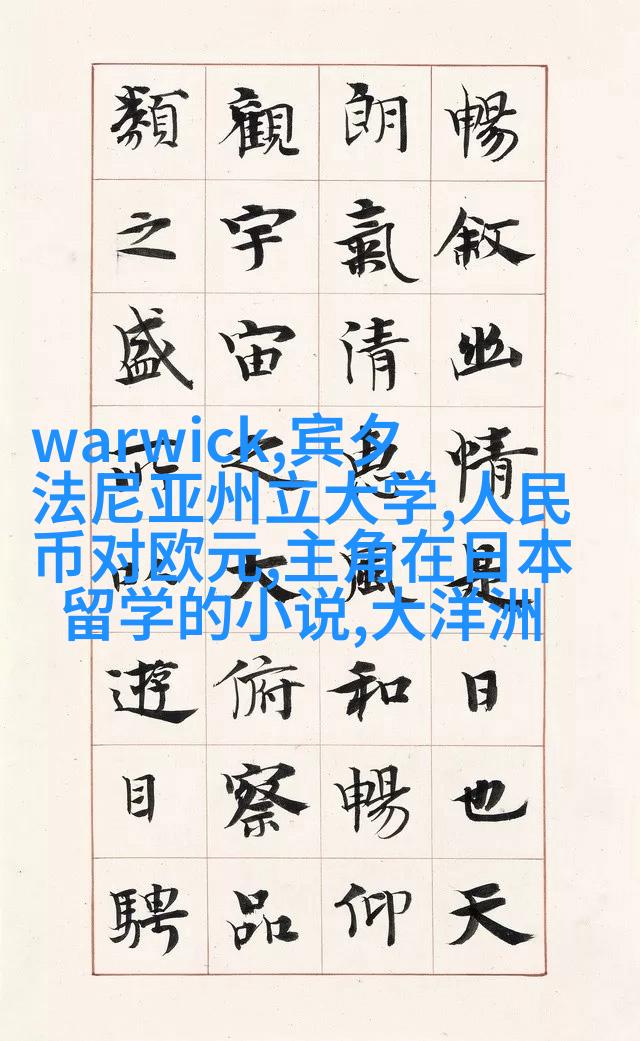 暢敘幽情是日也天
朗氣清惠風和暢仰
觀宇宙之大俯察品
類之盛所以遊目騁
warwick,宾夕
法尼亚州立大学,人民
币对欧元,主角在日本
留学的小说,大洋洲